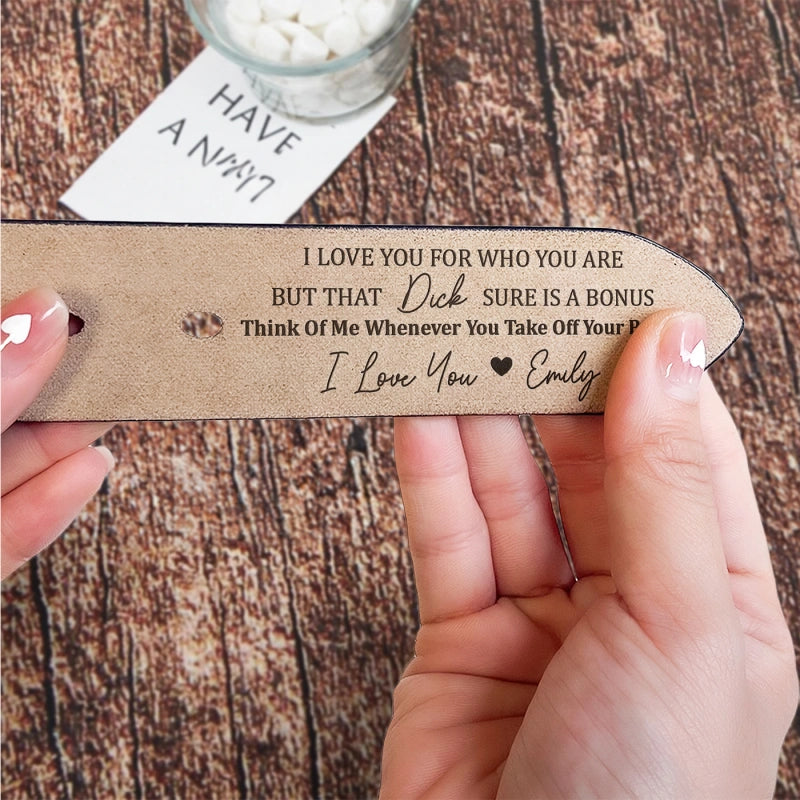 HAVE
A
I LOVE YOU FOR WHO YOU ARE
BUT THAT Dick SURE IS A BONUS
Think Of Me Whenever You Take Off Your
I Love You ♥ Emily